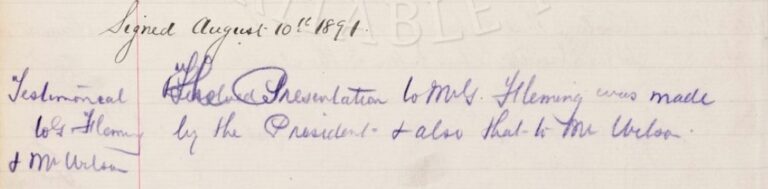 Signed August 10th 1891.
TABLE
Testimonial
to G Fleming
& Mr Wilson
The Presentation to Mr G. Fleming was made
by the President & also that to Mr Wilson.